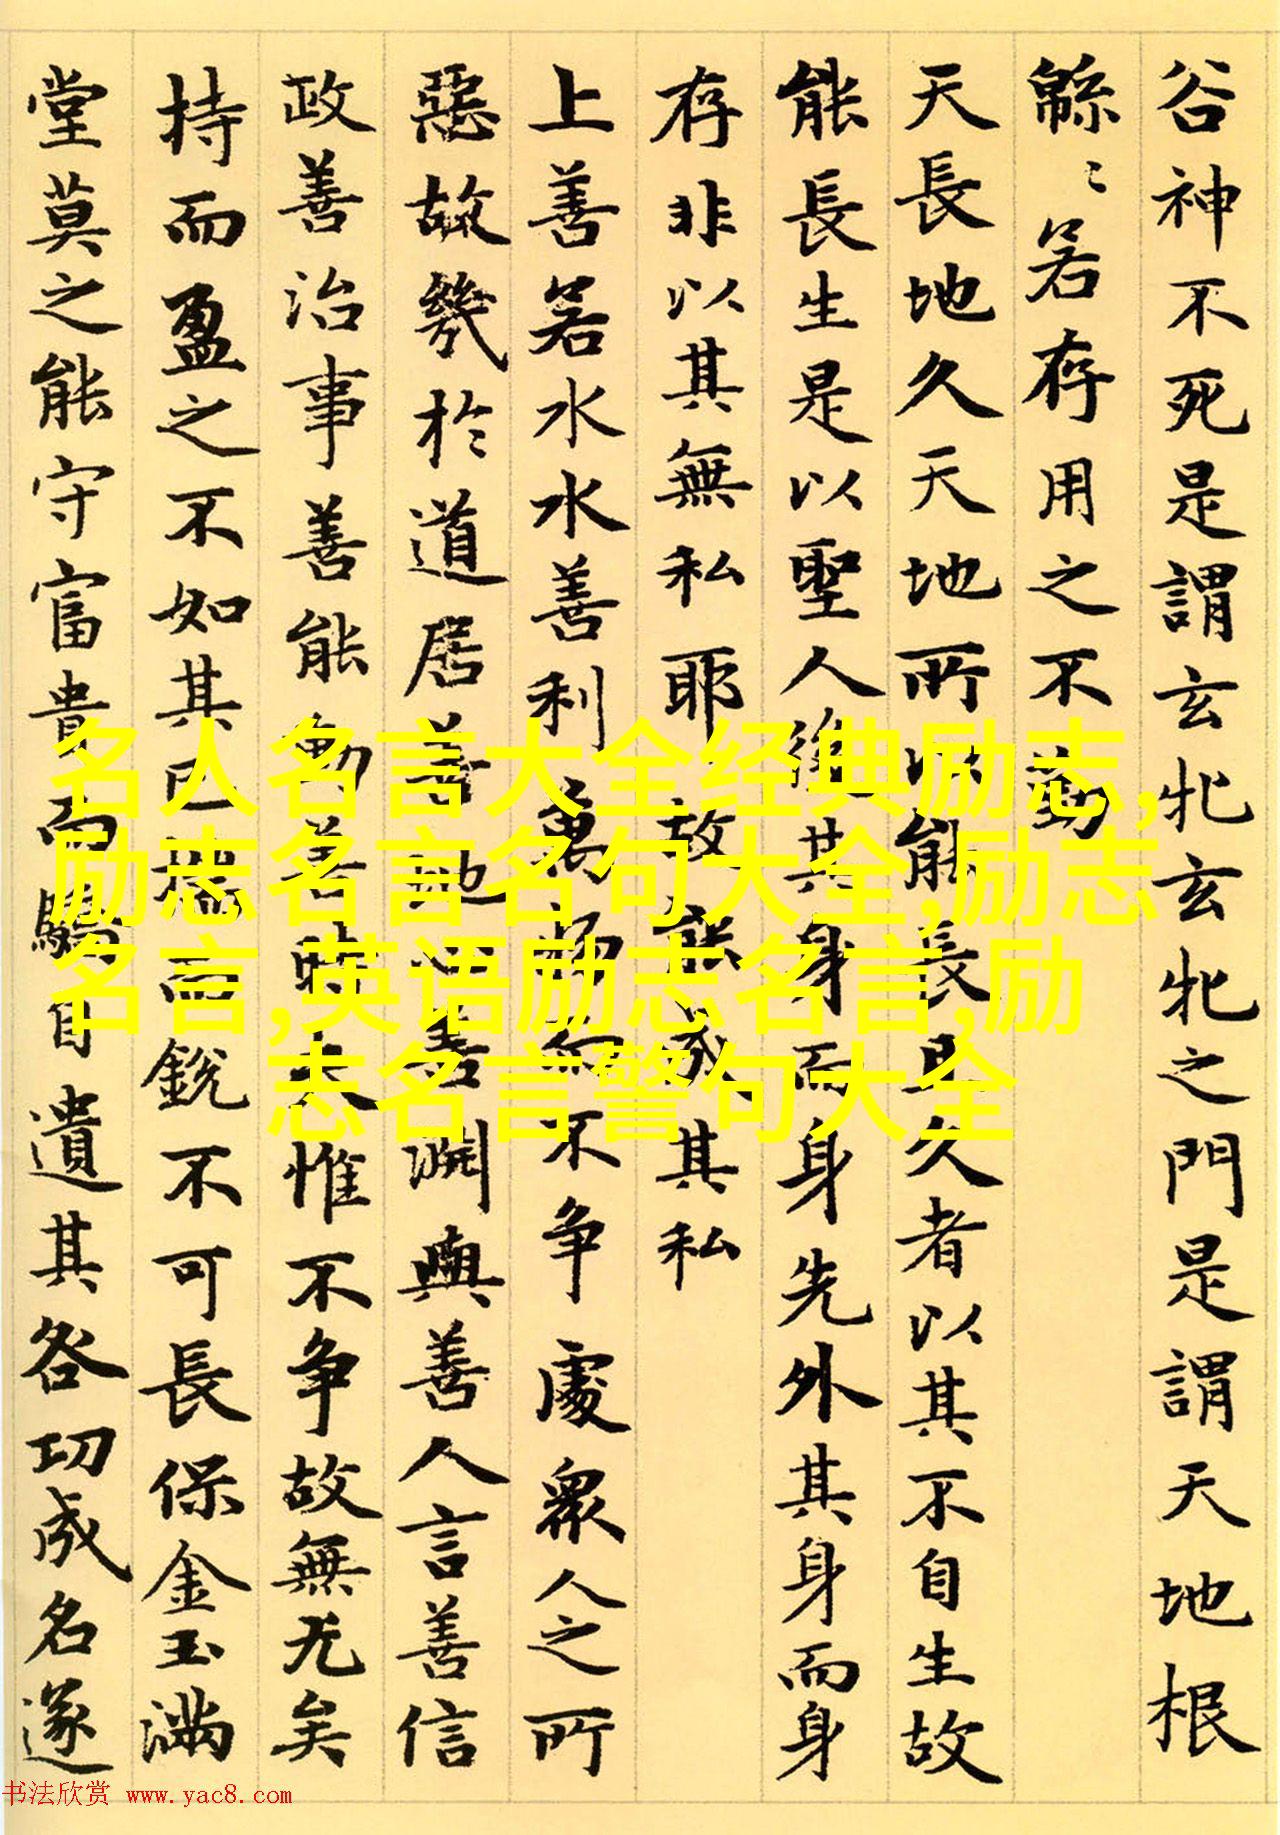 谷神不死是謂玄牝玄牝之門是謂天地根
緜〻若存用之不勤
天長地久天地所以能長且久者以其不自生故
能長生是以聖人後其身而身先外其身而身
存非以其無私耶故能成其私
上善若水水善利萬物而不争處衆人之所
惡故幾於道居善地心善淵與善人言善信
政善治事善能動善時夫惟不争故無尤矣
持而盈之不如其已揣而銳不可長保金玉滿
堂莫之能守富貴而驕自遺其咎功成名遂
名人名言大全经典励志,
励志名言名句大全,励志
名言,英语励志名言,励
志名言警句大全
书法欣赏 www.yac8.com